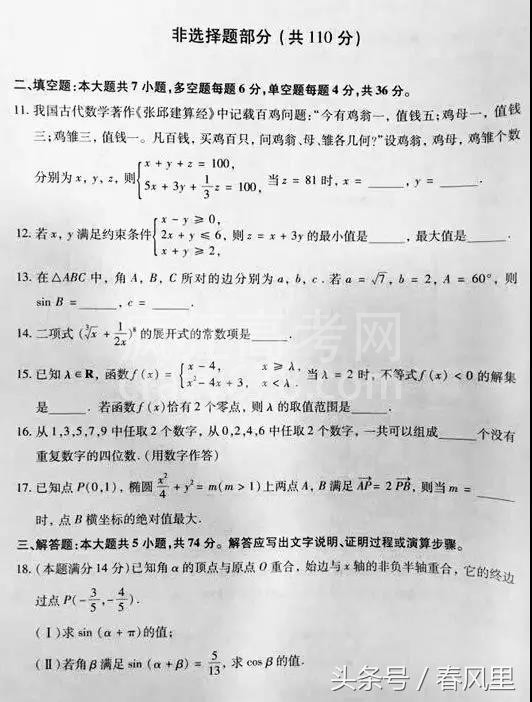 非选择题部分（共 110 分）
二、填空题：本大题共 7 小题，多空题每题 6 分，单空题每题 4 分，共 36 分。
11. 我国古代数学著作《张邱建算经》中记载百鸡问题：“今有鸡翁一，值钱五；鸡母一，值钱
三；鸡雏三，值钱一。凡百钱，买鸡百只，问鸡翁、母、雏各几何？”设鸡翁，鸡母，鸡雏个数
分别为 x，y，z，则 { x + y + z = 100, 5x + 3y + 1/3 z = 100, 当 z = 81 时，x = ____，y = ____.
12. 若 x，y 满足约束条件 { x - y ≥ 0, 2x + y ≤ 6, x + y ≥ 2, 则 z = x + 3y 的最小值是____，最大值是____.
13. 在△ABC 中，角 A，B，C 所对的边分别为 a，b，c．若 a = √7，b = 2，A = 60°，则
sin B = ____，c = ____.
14. 二项式 (∛x + 1/2x)⁸ 的展开式的常数项是____.
15. 已知 λ∈R，函数 f(x) = { x - 4, x ≥ λ, x² - 4x + 3, x < λ. 当 λ = 2 时，不等式 f(x) < 0 的解集
是____．若函数 f(x) 恰有 2 个零点，则 λ 的取值范围是____.
16. 从 1,3,5,7,9 中任取 2 个数字，从 0,2,4,6 中任取 2 个数字，一共可以组成____个没有
重复数字的四位数．(用数字作答)
17. 已知点 P(0,1)，椭圆 x²/4 + y² = m(m > 1) 上两点 A，B 满足 AP→ = 2 PB→，则当 m = ____
时，点 B 横坐标的绝对值最大．
三、解答题：本大题共 5 小题，共 74 分。解答应写出文字说明、证明过程或演算步骤。
18.（本题满分 14 分）已知角 α 的顶点与原点 O 重合，始边与 x 轴的非负半轴重合，它的终边
过点 P(-3/5, -4/5).
（Ⅰ）求 sin (α + π) 的值；
（Ⅱ）若角 β 满足 sin (α + β) = 5/13，求 cos β 的值．
头条号 / 春风里